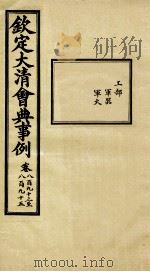 欽定大清會典事例
卷八百九十三至
八百九十五
工部
軍器
軍火